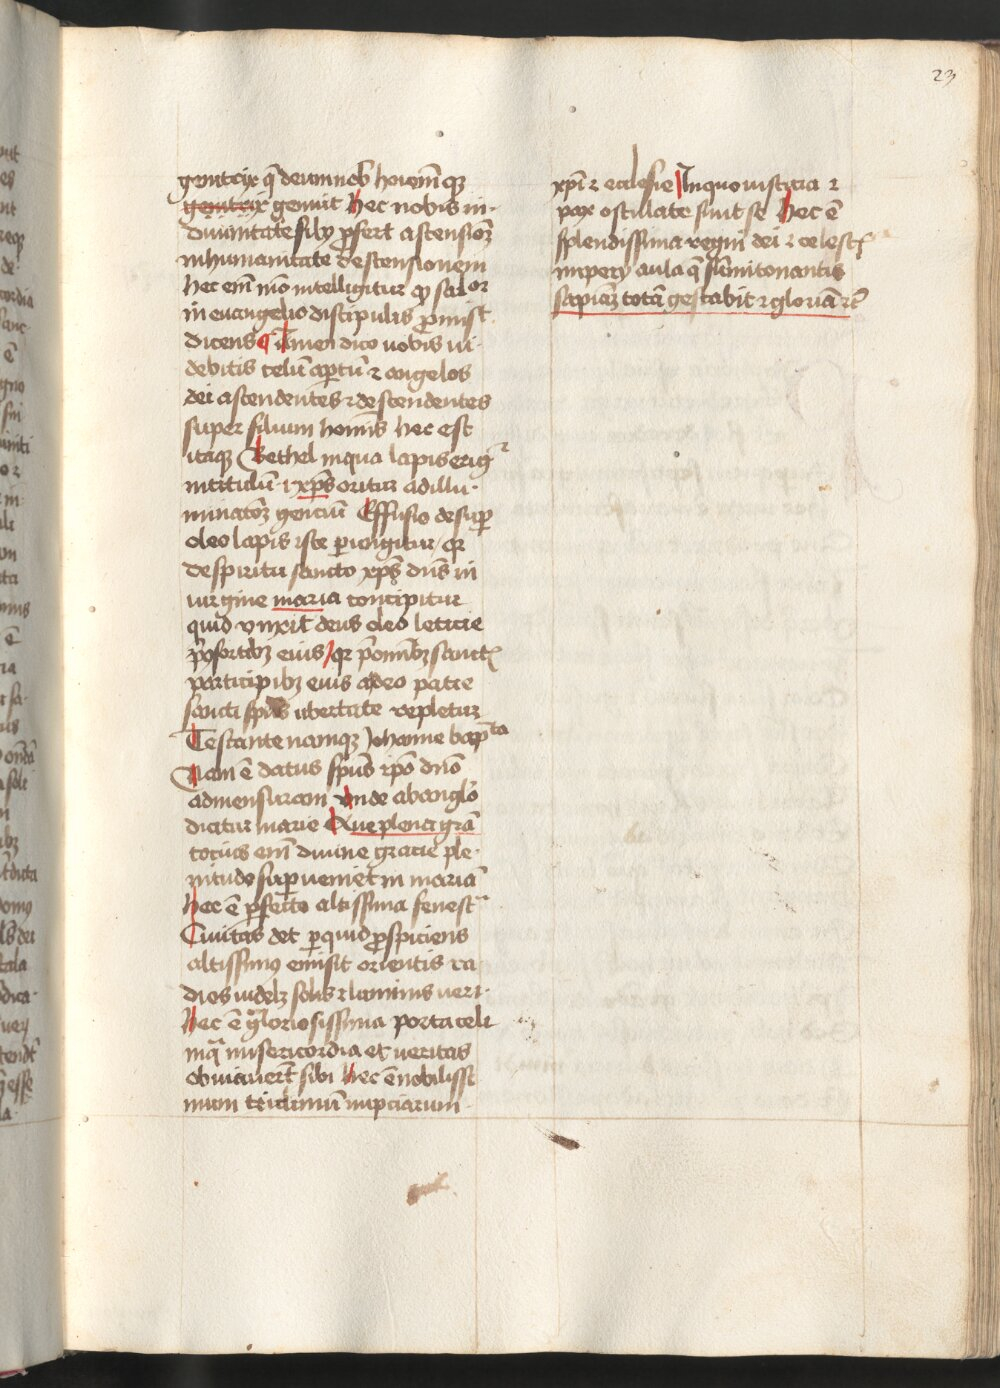 23
genitrix q̄ deum nob̄ hoīem qꝫ
genitrix genuit Hec nobis in·
diuinitate filij ꝓfert ascensionē
in humanitate descensionem
hec em̄ mō intelligitur qꝫ saluator
in euangelio discipulis ꝓmisit
dicens Amen dico uobis ui·
debitis celū aꝑtū ⁊ angelos
dei ascendentes ⁊ descendentes
super filium homīs hec est
itaqꝫ Bethel in qua lapis erigit᷑
in titulū · xp̄s oritur ad illu·
minatōꝫ gentiū Effusio desuꝑ
oleo lapis iste ꝑungitur / qꝛ
de spiritu sancto xp̄s dn̄s in
uirgine maria concipitur
quid vnxit deus oleo leticie
p̄ ꝯsortibꝫ eius / qꝛ p̄ omībꝫ sanctis
participibꝫ eius a deo patre
sancti sp̄us ubertate repletur
Testante namqꝫ Johanne bapta
Nam ē datus sp̄us xp̄o dn̄o
ad mensuram vnde ab anglō
dicitur marie Aue plena grā
tocius em̄ diuine gracie ple·
nitudo suꝑueniet in mariā
hec ē ꝑfecto altissima fenestra
Ciuitas det ꝑ quid ꝓspiciens
altissimꝰ emisit orientis ra
dios uidelꝫ solis ⁊ luminis ueri·
Hec ē gloriosissima porta celi
in q̄ misericordia et ueritas
obuiauerūt sibi Hec ē nobilissi
mum tricliniū nupciarum
xp̄i ⁊ ecclesie In quo iusticia ⁊
pax osculate sunt se Hec ē
splendissima regni dei ⁊ celestis
imperij aula q̄ sūmi tonantis
sapiaꝫ totā gestabit ⁊ gloriā ⁊c̄